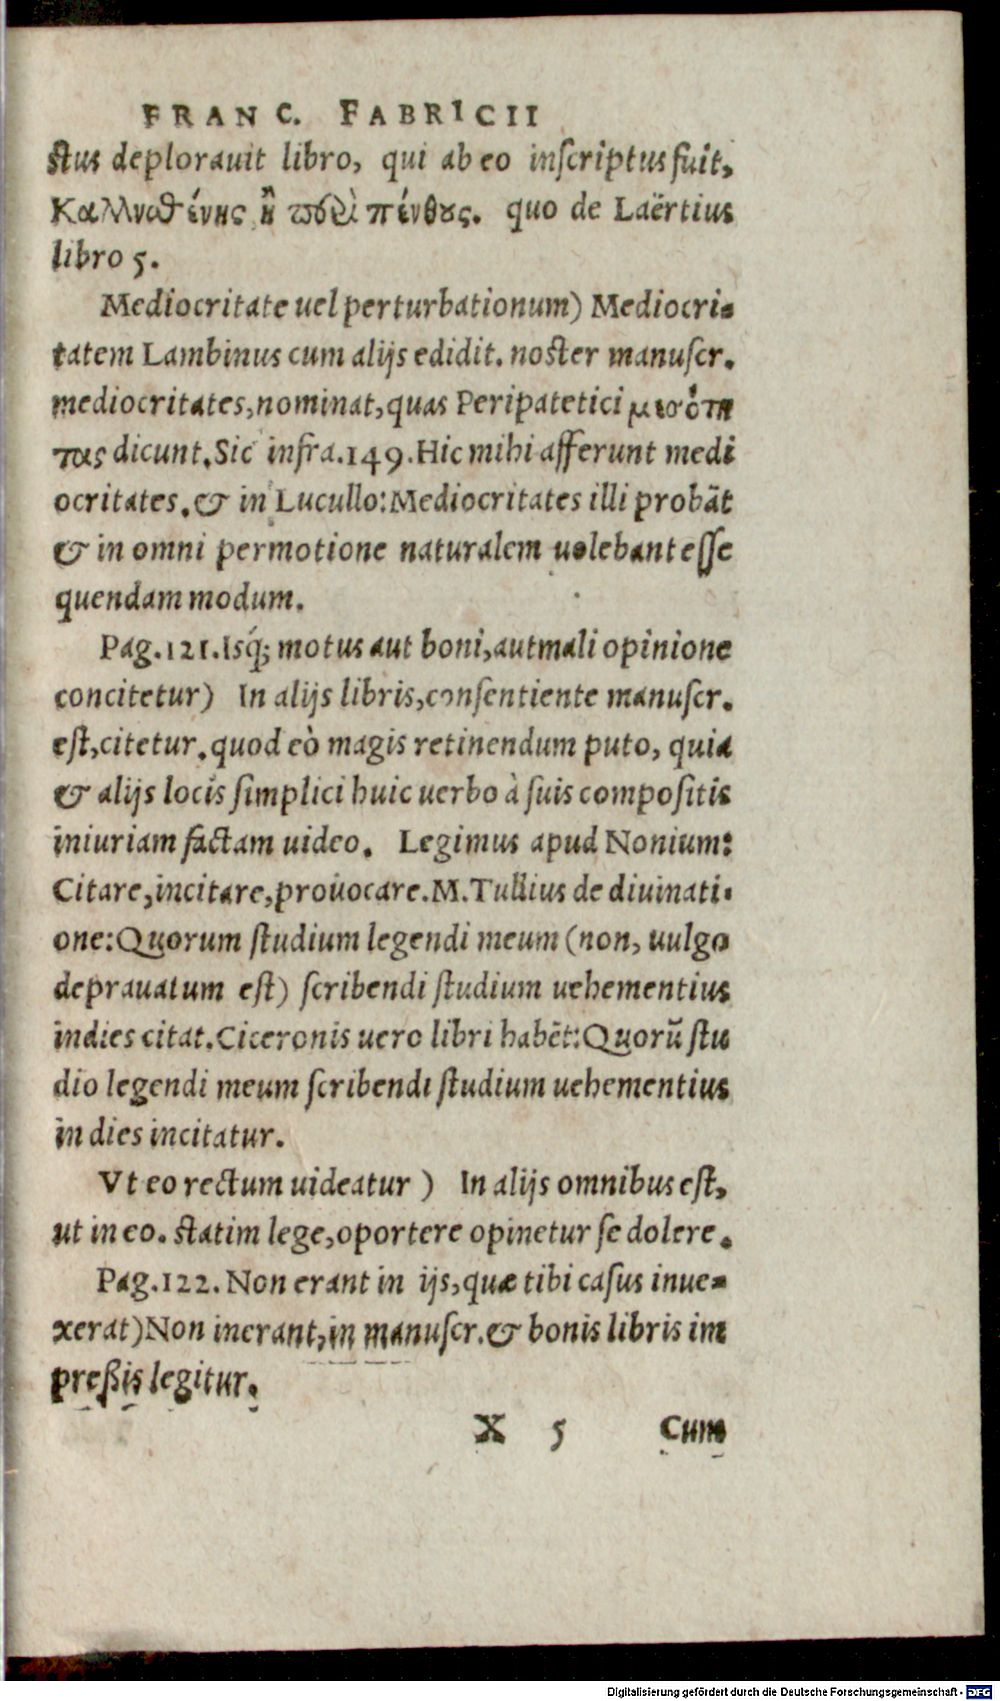 FRANC. FABRICII
stus deplorauit libro, qui ab eo inscriptus fuit,
Καλλισθένης ἢ περὶ πένθους. quo de Laërtius
libro 5.
Mediocritate uel perturbationum) Mediocri-
tatem Lambinus cum alijs edidit. noster manuscr.
mediocritates, nominat, quas Peripatetici μεσότη
τας dicunt. Sic infra. 149. Hic mihi afferunt medi
ocritates. & in Lucullo: Mediocritates illi probãt
& in omni permotione naturalem uolebant esse
quendam modum.
Pag. 121. Isq́; motus aut boni, aut mali opinione
concitetur) In alijs libris, consentiente manuscr.
est, citetur. quod eò magis retinendum puto, quia
& alijs locis simplici huic uerbo à suis compositis
iniuriam factam uideo. Legimus apud Nonium:
Citare, incitare, prouocare. M. Tullius de diuinati-
one: Quorum studium legendi meum (non, uulgo
deprauatum est) scribendi studium uehementius
indies citat. Ciceronis uero libri habẽt: Quorũ stu
dio legendi meum scribendi studium uehementius
in dies incitatur.
Vt eo rectum uideatur) In alijs omnibus est,
ut in eo. statim lege, oportere opinetur se dolere.
Pag. 122. Non erant in ijs, quæ tibi casus inue-
xerat) Non inerant, in manuscr. & bonis libris im
preßis legitur.
X 5 Cum
Digitalisierung gefördert durch die Deutsche Forschungsgemeinschaft - DFG